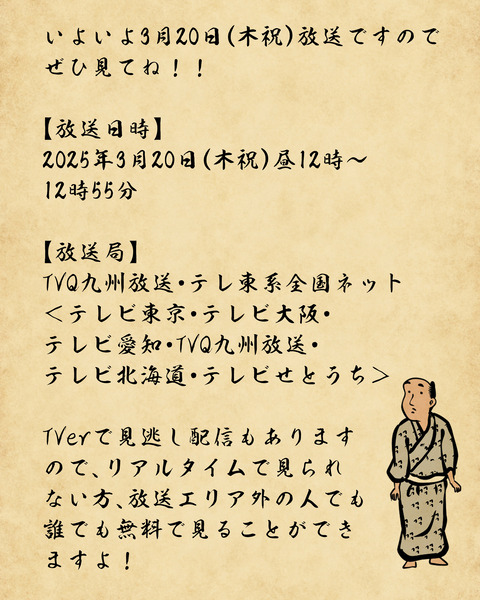 いよいよ3月20日(木祝)放送ですので
ぜひ見てね！！
【放送日時】
2025年3月20日(木祝)昼12時〜
12時55分
【放送局】
TVQ九州放送・テレ東系全国ネット
＜テレビ東京・テレビ大阪・
テレビ愛知・TVQ九州放送・
テレビ北海道・テレビせとうち＞
TVerで見逃し配信もあります
ので、リアルタイムで見られ
ない方、放送エリア外の人でも
誰でも無料で見ることができ
ますよ！